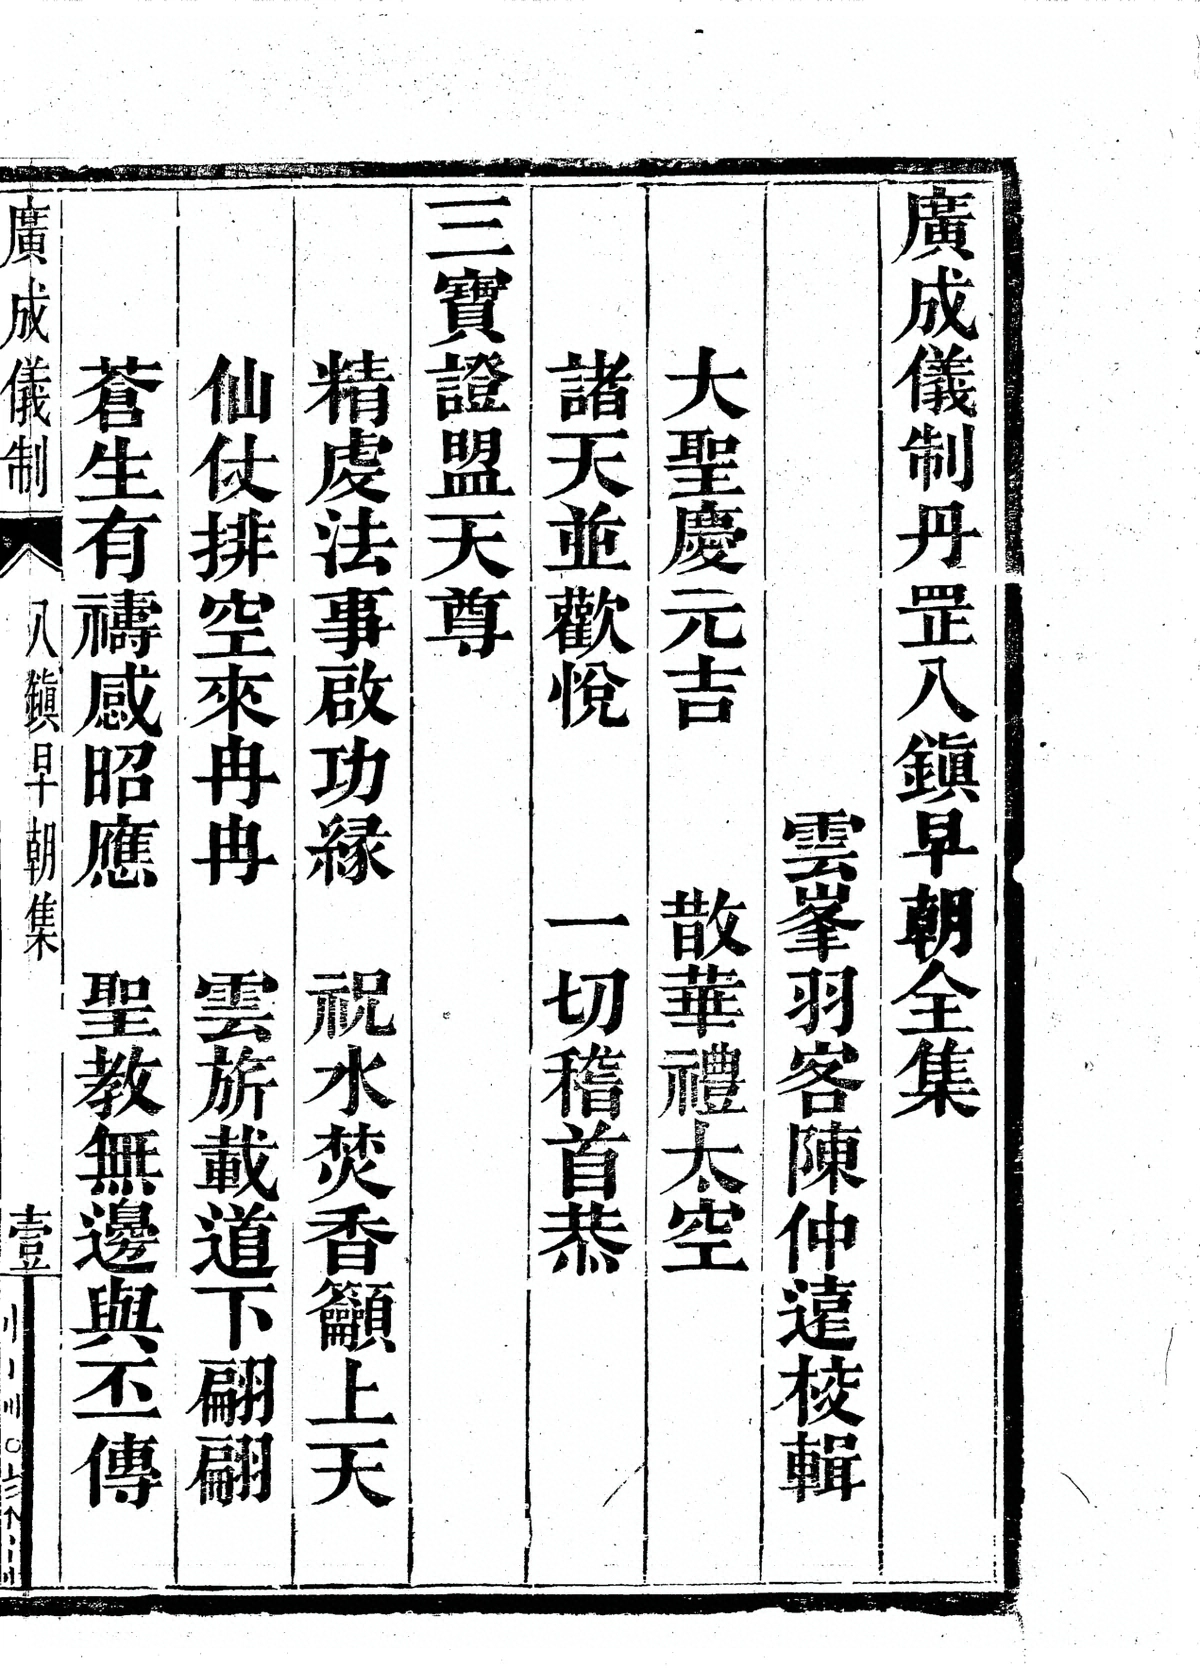 廣成儀制丹罡八鎮早朝全集
雲峯羽客陳仲遠校輯
大聖慶元吉　散華禮太空
諸天並歡悅　一切稽首恭
三寶證盟天尊
精虔法事啟功緣　祝水焚香籲上天
仙仗排空來冉冉　雲旂載道下翩翩
蒼生有禱感昭應　聖教無邊與丕傳
廣成儀制
八鎮早朝集
壹